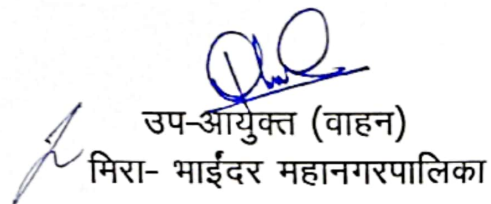 उप-आयुक्त (वाहन)
मिरा- भाईंदर महानगरपालिका